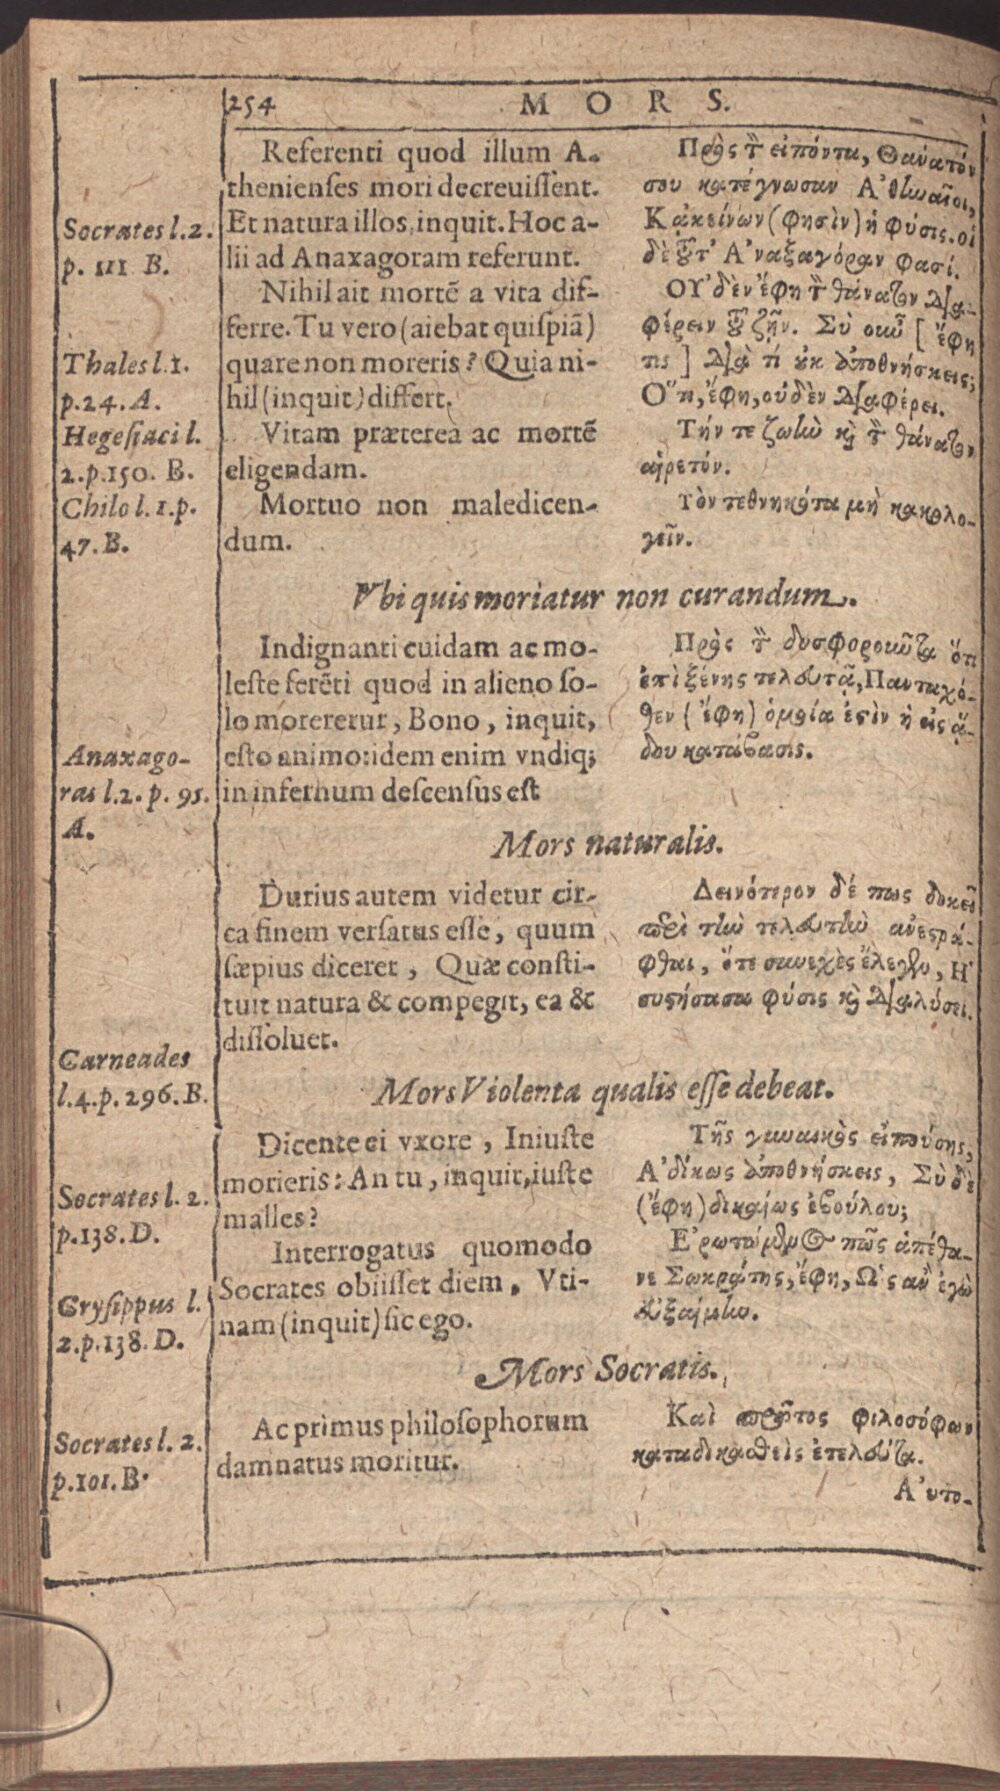 254 MORS.
Socrates l. 2.
p. 111 B.
Thales l. 1.
p. 24. A.
Hegesiaci l.
2. p. 150. B.
Chilo l. 1. p.
47. B.
Referenti quod illum A-
thenienses mori decreuissent.
Et natura illos, inquit. Hoc a-
lii ad Anaxagoram referunt.
Nihil ait mortē a vita dif-
ferre. Tu vero (aiebat quispiā)
quare non moreris? Quia ni-
hil (inquit) differt.
Vitam præterea ac mortē
eligendam.
Mortuo non maledicen-
dum.
Πρὸς τ̀ εἰπόντα, Θανατόν
σου κατέγνωσαν Ἀθηναῖοι,
Κἀκείνων (φησὶν) ἡ φύσις. οἱ
δὲ τοῦτ' Ἀναξαγόραν φασί.
Οὐδὲν ἔφη τ̀ θάνατον δια-
φέρειν τοῦ ζῆν. Σὺ οὖν [ἔφη
τις] διὰ τί οὐκ ἀποθνήσκεις;
Ὅτι, ἔφη, οὐδὲν διαφέρει.
Τήν τε ζωὴν καὶ τ̀ θάνατον
αἱρετόν.
Τὸν τεθνηκότα μὴ κακολο-
γεῖν.
Vbi quis moriatur non curandum.
Anaxago-
ras l. 2. p. 95.
A.
Indignanti cuidam ac mo-
leste ferēti quod in alieno so-
lo moreretur, Bono, inquit,
esto animo: idem enim vndiq;
in infernum descensus est
Πρὸς τ̀ δυσφοροῦντα ὅτι
ἐπὶ ξένης τελευτᾷ, Πανταχό-
θεν (ἔφη) ὁμοία ἐστὶν ἡ εἰς ᾅ-
δου κατάβασις.
Mors naturalis.
Carneades
l. 4. p. 296. B.
Durius autem videtur cir-
ca finem versatus esse, quum
sæpius diceret, Quæ consti-
tuit natura & compegit, ea &
dissoluet.
Δεινότερον δέ πως δοκεῖ
περὶ τὴν τελευτὴν ἀνεστρά-
φθαι, ὅτε συνεχὲς ἔλεγεν, Ἡ
συστήσασα φύσις καὶ διαλύσει.
Mors Violenta qualis esse debeat.
Socrates l. 2.
p. 138. D.
Crysippus l.
2. p. 138. D.
Dicente ei vxore, Iniuste
morieris: An tu, inquit, iuste
malles?
Interrogatus quomodo
Socrates obiisset diem, Vti-
nam (inquit) sic ego.
Τῆς γυναικὸς εἰπούσης,
Ἀδίκως ἀποθνήσκεις, Σὺ δὲ
(ἔφη) δικαίως ἐβούλου;
Ἐρωτώμενος πῶς ἀπέθα-
νε Σωκράτης, ἔφη, Ὡς ἂν ἐγὼ
εὐξαίμην.
Mors Socratis.
Socrates l. 2.
p. 101. B.
Ac primus philosophorum
damnatus moritur.
Καὶ πρῶτος φιλοσόφων
καταδικασθεὶς ἐτελεύτα.
Ἀυτο-